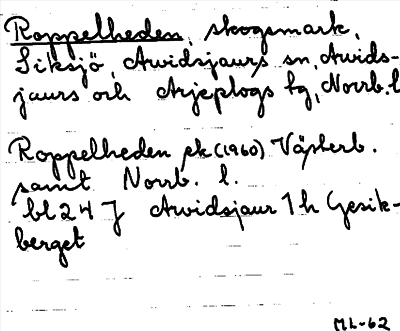 Roppelheden, skogsmark,
Siksjö, Arvidsjaurs sn, Arvids-
jaurs och Arjeplogs tg, Norrb. l
Roppelheden ek (1960) Västerb.
samt Norrb. l.
bl 24 J Arvidsjaur 1 h Gesik-
berget
ML-62